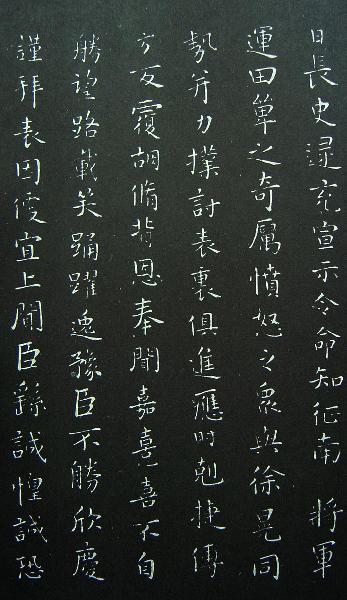 日長史逯充宣示令命知征南 將軍
運田單之奇厲憤怒之眾與徐晃同
勢并力撲討表裏俱進應時剋捷傅
方反覆胡脩背恩奉聞嘉憙喜不自
勝望路載笑踊躍逸豫臣不勝欣慶
謹拜表因便宜上聞臣繇誠惶誠恐